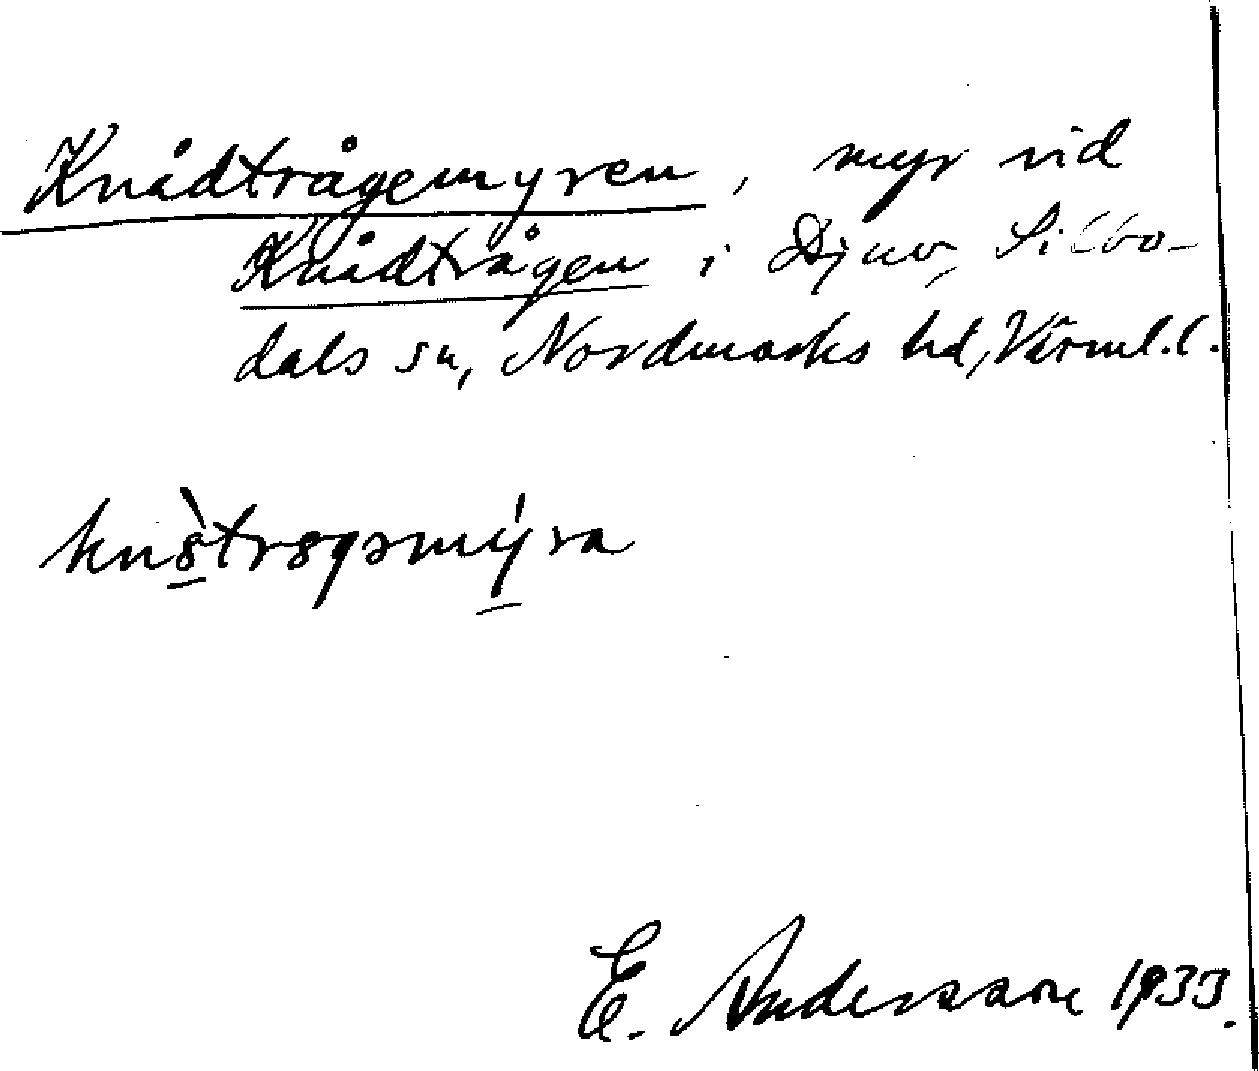 Knådtrågemyren, myr vid
Knådtrågen i Djuv, Silbo-
dals sn, Nordmarks hd, Värml. l.
E. Andersson 1933.